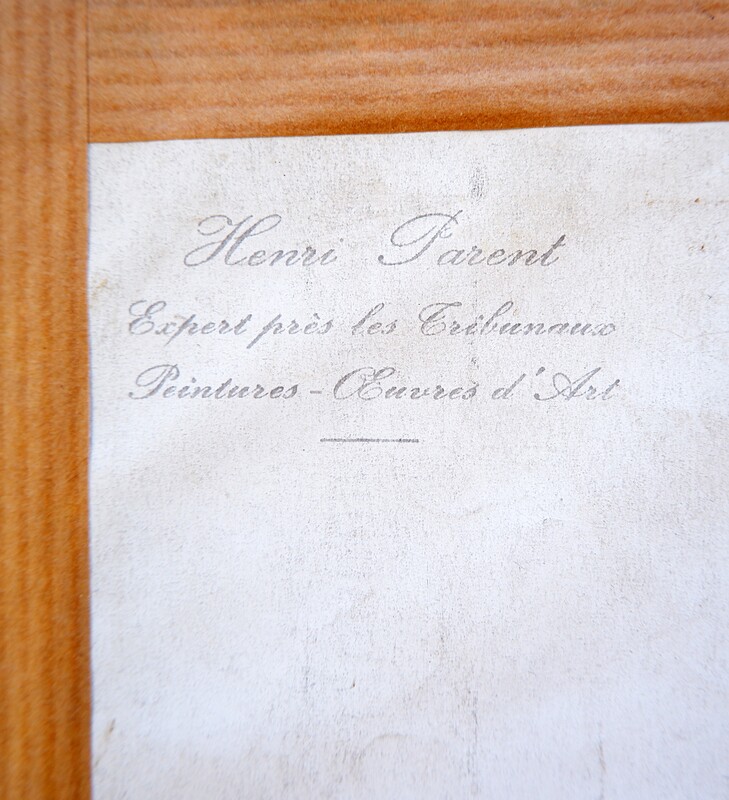 Henri Parent
Expert près les Tribunaux
Peintures - Œuvres d'Art